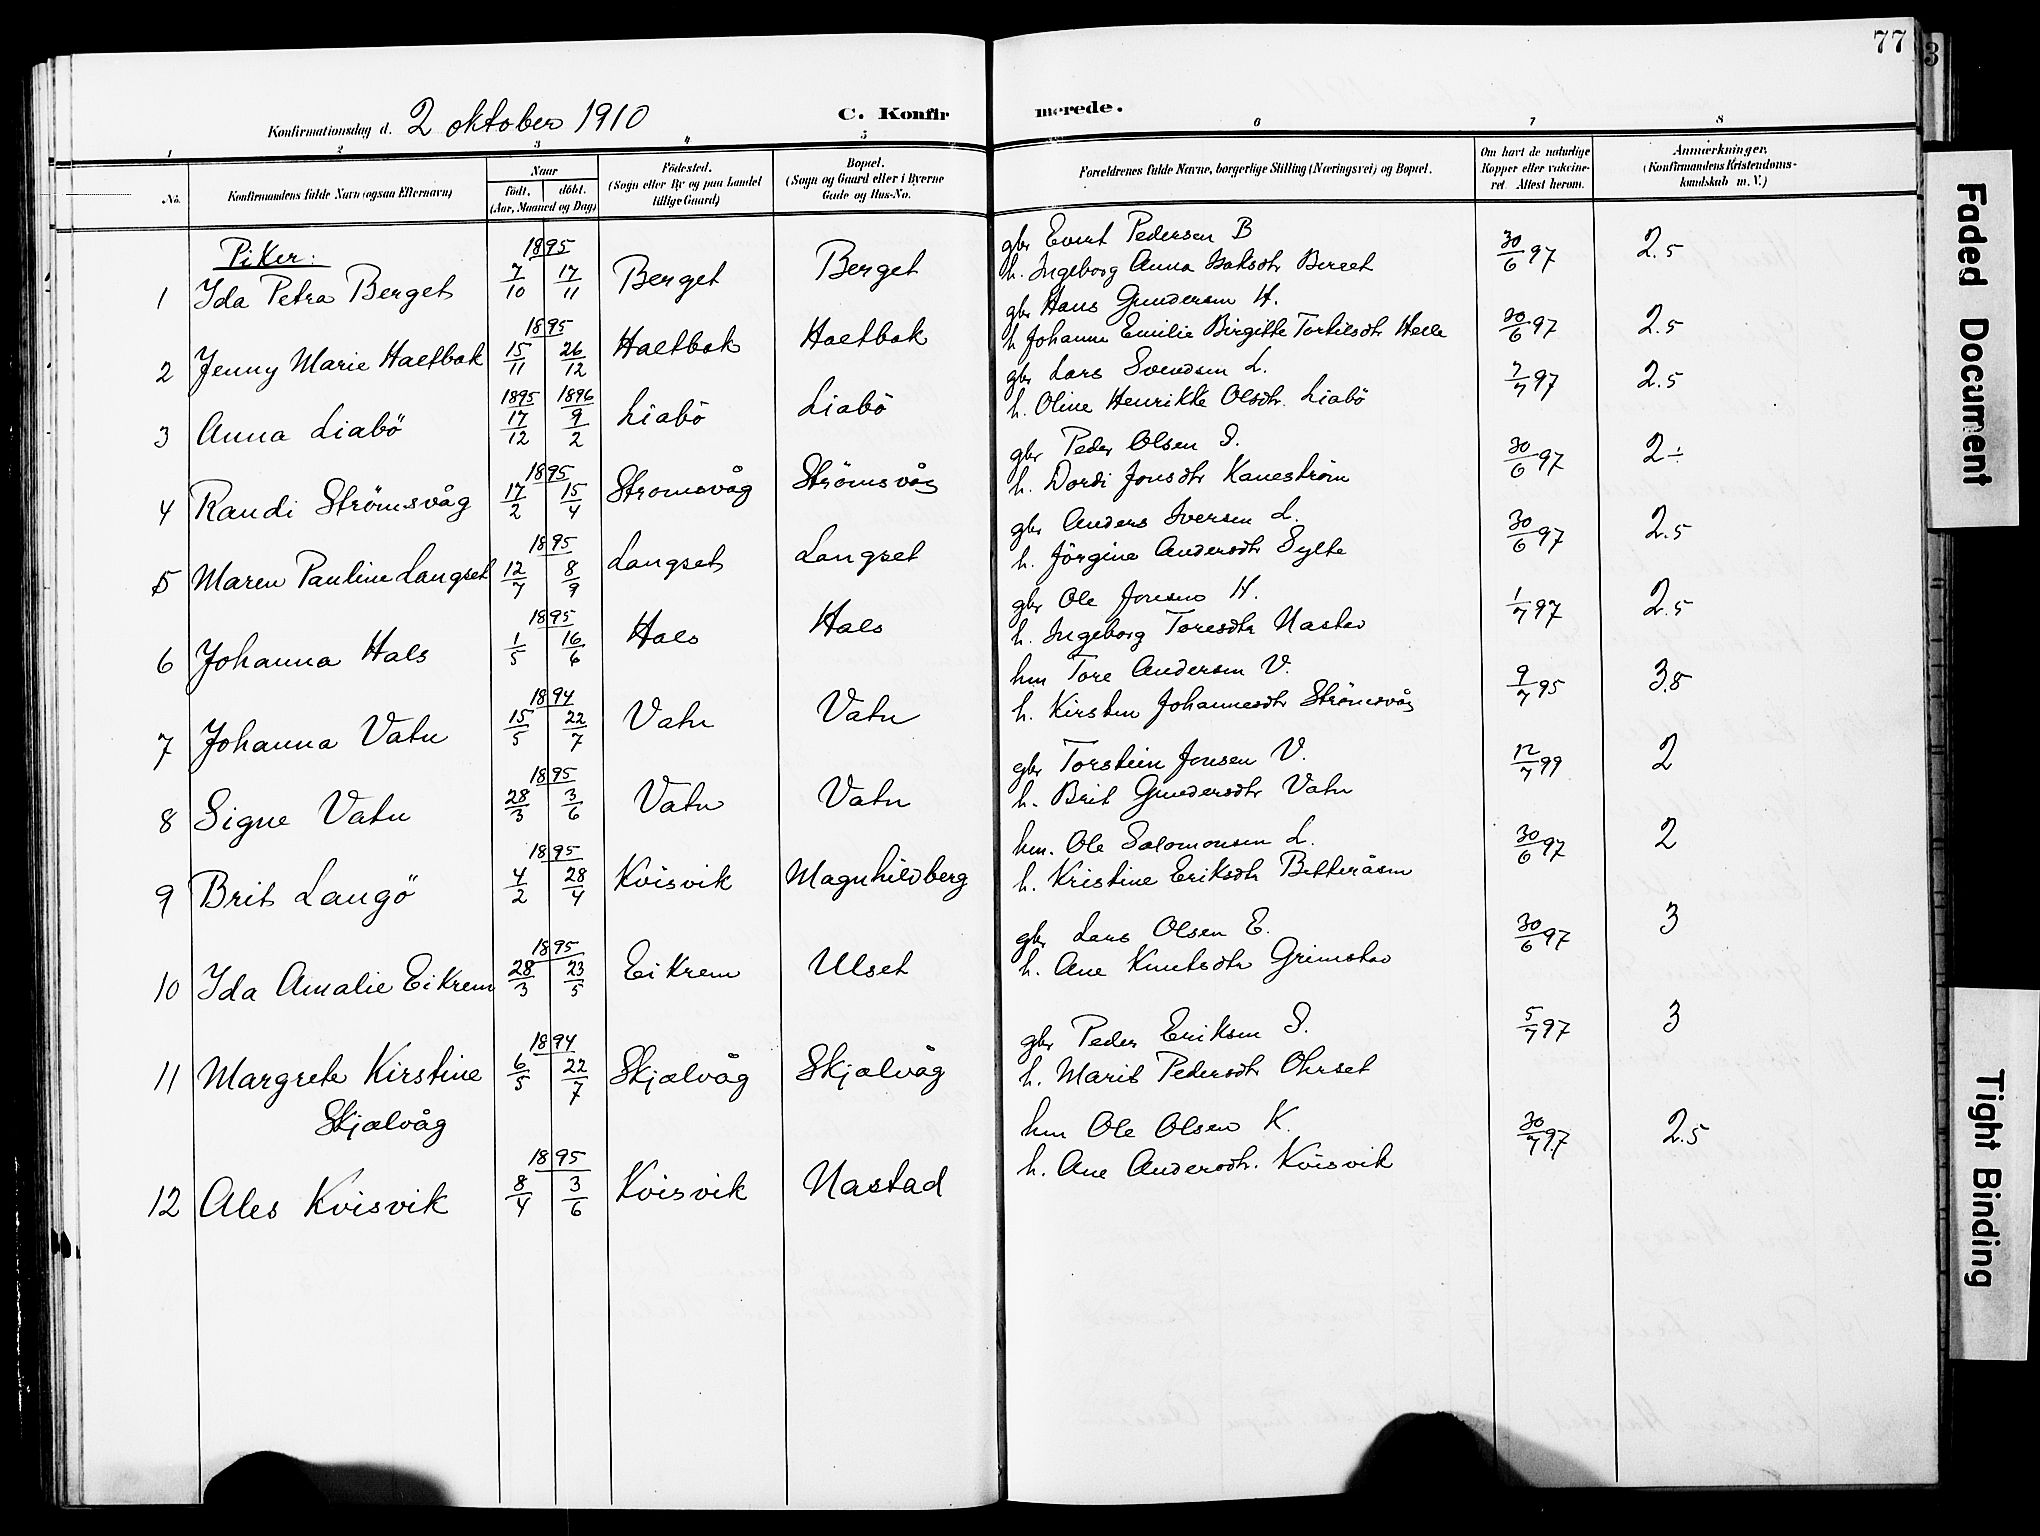 77
3
Konfirmationsdag d. 2 oktober 1910
C. Konfirmerede.
1 2 3 4 5 6 7 8
No.
Konfirmandens fulde Navn (ogsaa Efternavn)
Naar
født. døbt.
(Aar, Maaned og Dag)
Fødested.
(Sogn eller By og paa Landet
tillige Gaard)
Bopæl.
(Sogn og Gaard eller i Byerne
Gade og Hus-No.
Forældrenes fulde Navne, borgerlige Stilling (Næringsvei) og Bopæl.
Om havt de naturlige
Kopper eller vakcine-
ret. Attest herom.
Anmærkninger.
(Konfirmandens Kristendoms-
kundskab m. V.)
Piker:
1 Ida Petra Berget 1895 7/10 17/11 Berget Berget gbr Evert Pedersen B 30/6 97 2.5
h. Ingeborg Anna Isaksdtr Berget
2 Jenny Marie Haltbak 1895 15/11 26/12 Haltbak Haltbak gbr Hans Gundersen H. 30/6 97 2.5
h Johanne Emilie Birgitte Torkilsdtr Helle
3 Anna Liabö 1895 17/12 1896 9/2 Liabö Liabö gbr Lars Svendsen L. 7/7 97 2.5
h. Oline Henrikke Olsdtr. Liabö
4 Randi Strömsvåg 1895 17/2 15/4 Strömsvåg Strömsvåg gbr Peder Olsen S. 30/6 97 2÷
h. Dordi Jonsdtr Kanestrøm
5 Maren Pauline Langset 1895 12/7 8/9 Langset Langset gbr Anders Iversen L. 30/6 97 2.5
h. Jörgine Andersdtr Sylte
6 Johanna Hals 1895 1/5 16/6 Hals Hals gbr Ole Jonsen H. 1/7 97 2.5
h. Ingeborg Toresdtr Nastad
7 Johanna Vatn 1894 15/5 22/7 Vatn Vatn hm Tore Andersen V. 9/7 95 3.5
h. Kirsten Johannesdtr Strömsvåg
8 Signe Vatn 1895 28/3 3/6 Vatn Vatn gbr Torstein Jonsen V. 12/7 99 2
h. Brit Gundersdtr Vatn
9 Brit Langö 1895 4/2 28/4 Kvisvik Magnhildberg hm. Ole Salomonsen L. 30/6 97 2
h. Kristine Eriksdtr Bitteråsen
10 Ida Amalie Eikrem 1895 28/3 23/5 Eikrem Ulset gbr Lars Olsen E. 30/6 97 3
h. Ane Knutsdtr Grimstad
11 Margrete Kirstine 1894 6/5 22/7 Skjælvåg Skjælvåg gbr Peder Eriksen S. 5/7 97 3
Skjælvåg
h. Marit Pedersdtr Ohrset
12 Ales Kvisvik 1895 8/4 3/6 Kvisvik Nastad hm Ole Olsen K. 30/7 97 2.5
h. Ane Andersdtr. Kvisvik
Faded Document
Tight Binding